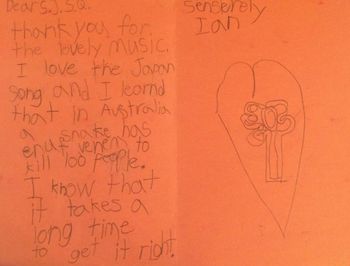 Dear S.J.S.Q.
thank you for
the lovely music.
I love the Japan
song and I learnd
that in Australia
a snake has
enuf venem to
kill 100 people.
I know that
it takes a
long time
to get it right.
Senserely
Ian